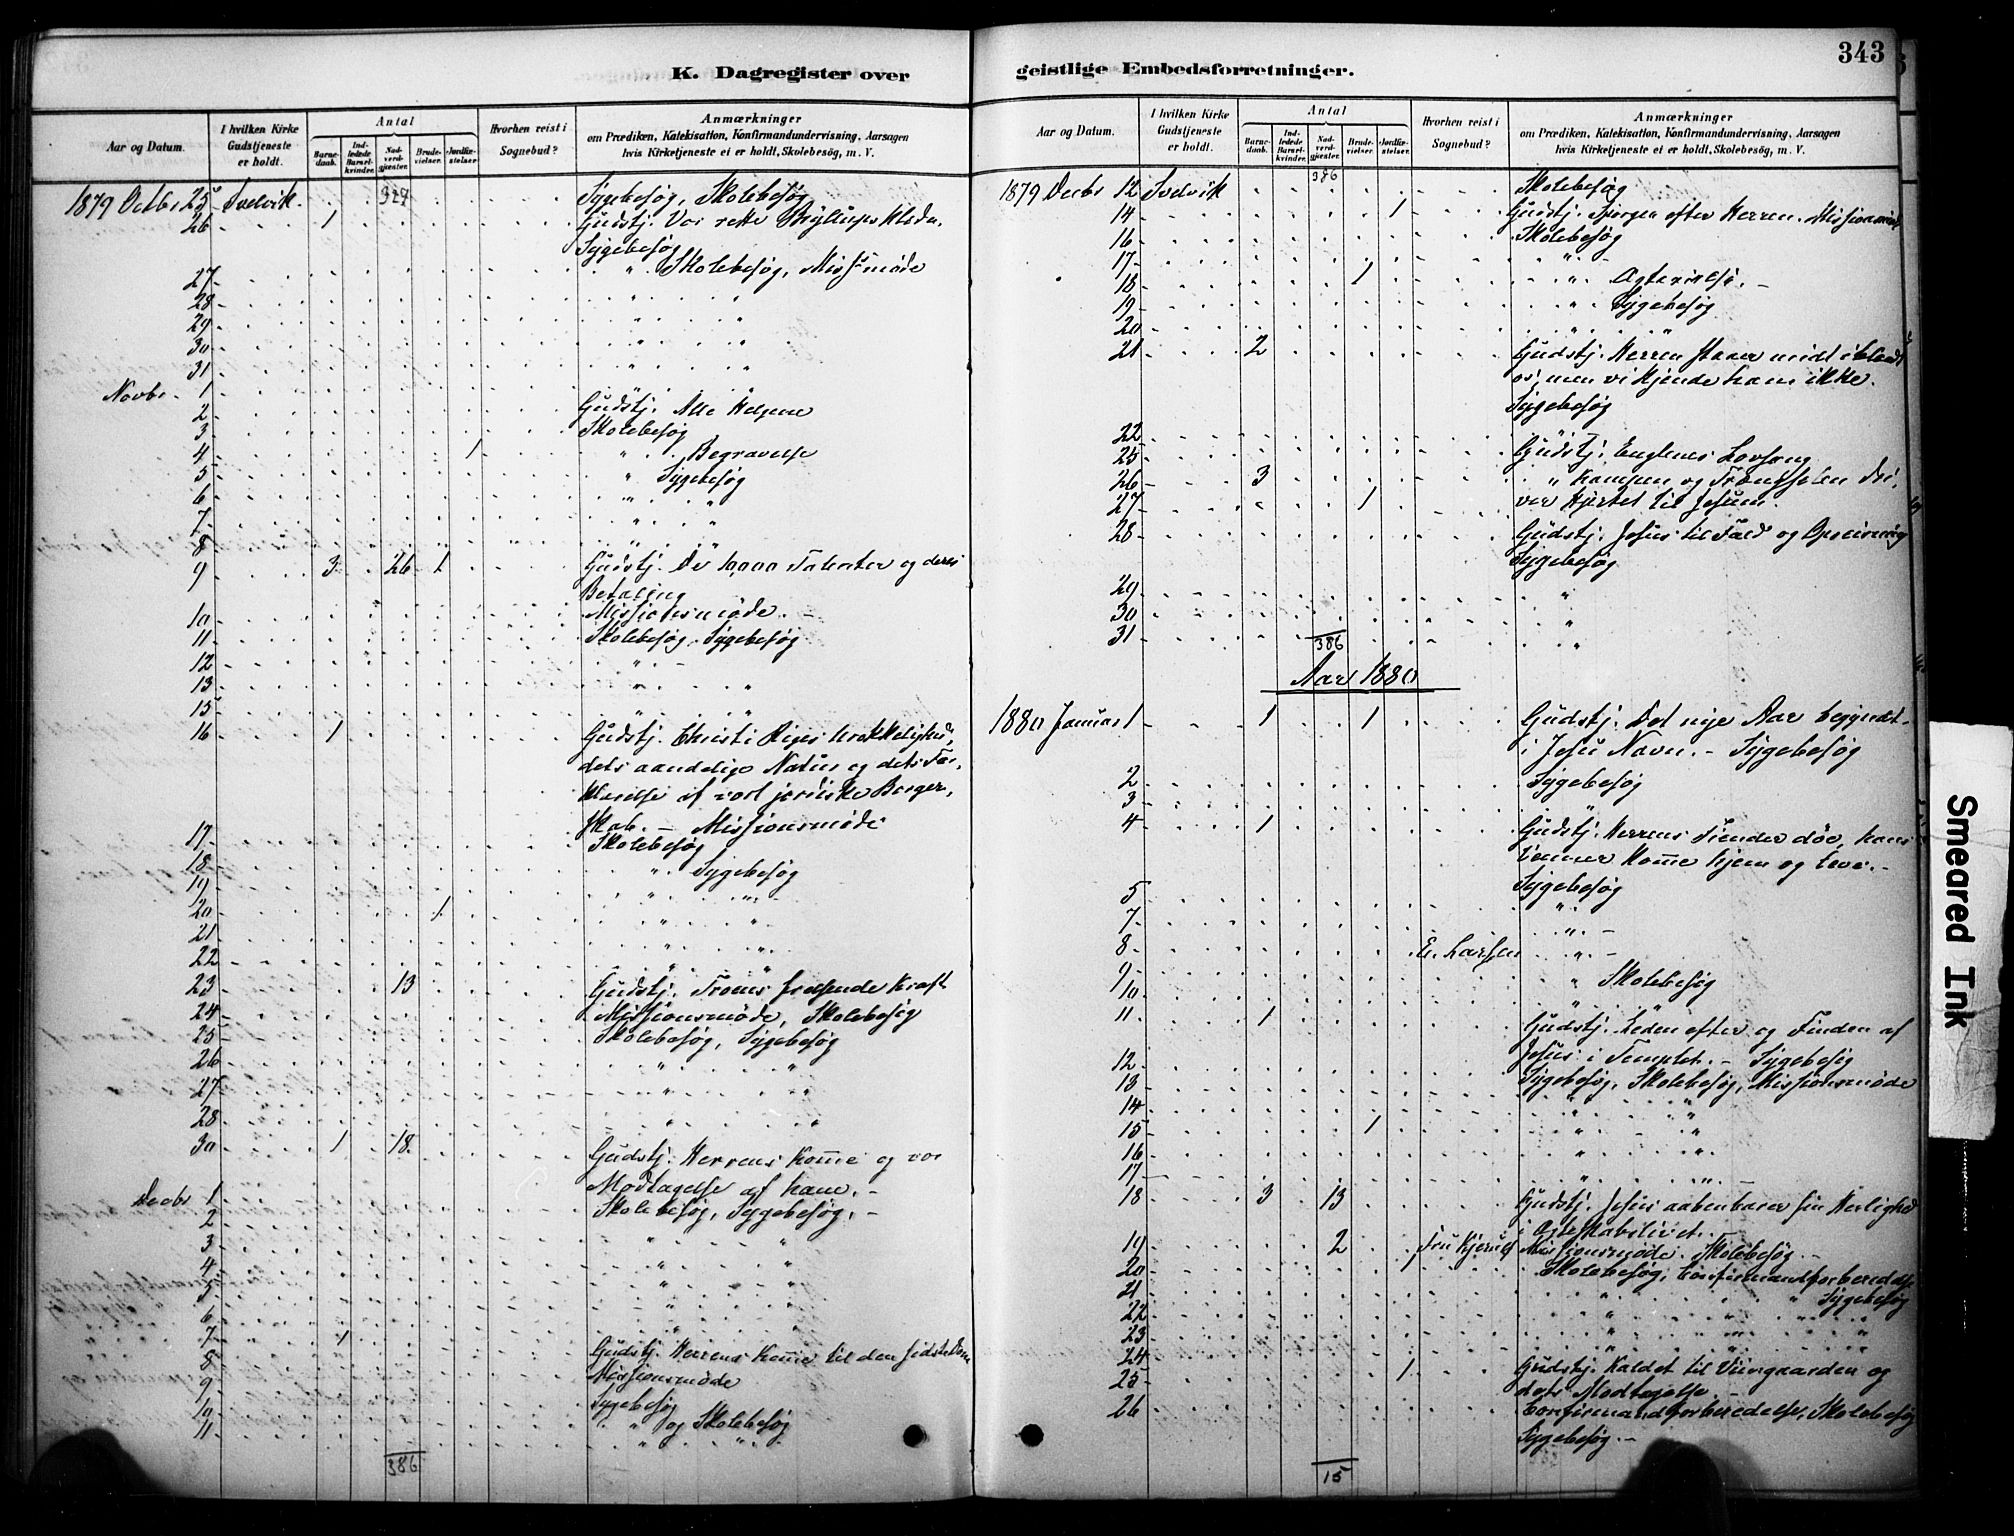 343
K. Dagregister over
geistlige Embedsforretninger.
Aar og Datum.
I hvilken Kirke Gudstjeneste er holdt.
Antal
Barnedaab.
Indledede Barselkvinder.
Nadverdgjester.
Brudevielser.
Jordfæstelser.
Hvorhen reist i Sognebud?
Anmærkninger
om Prædiken, Katekisation, Konfirmandundervisning, Aarsagen
hvis Kirketjeneste ei er holdt, Skolebesög, m. V.
1879 Octbr 25 Svelvik 329 Sygebesøg, Skolebesøg
26 1 Gudstj. Vor rette
Sygebesøg
27 " Skolebesøg, Miss. møde
28 " "
29 " "
30 " "
31 " "
Novbr. 1
2 Gudstj. Alle Helgene
3 Skolebesøg
4 1 " Begravelse
5 " Sygebesøg
6 " "
7 " "
8 " "
9 3 26 1 Gudstj. De 10,000 Talenter og deres
Betaling
10 Missionsmøde. –
11 Skolebesøg, Sygebesøg
12 " –
13 " "
15 " "
16 1 Gudstj. Christi Riges
dets aandelige Natur og dets For-
klarelse af vort jordiske Borger-
skab. – Missionsmøde
17 Skolebesøg
18 " Sygebesøg
19 " "
20 1 " "
21 " "
22 " "
23 13 Gudstj. Troens frelsende Kraft
24 Missionsmøde, Skolebesøg
25 Skolebesøg, Sygebesøg
26 " "
27 " "
28 " "
30 1 18 Gudstj. Herrens Komme og vor
Modtagelse af ham. –
Decbr 1 Skolebesøg, Sygebesøg. –
2 " "
3 " "
4 " "
5 " "
6 " "
7 1 Gudstj. Herrens Komme til den sidste Dom
8 Missionsmøde
9 Sygebesøg
10 " og Skolebesøg
11 " "
386
Aar og Datum.
I hvilken Kirke Gudstjeneste er holdt.
Antal
Barnedaab.
Indledede Barselkvinder.
Nadverdgjester.
Brudevielser.
Jordfæstelser.
Hvorhen reist i Sognebud?
Anmærkninger
om Prædiken, Katekisation, Konfirmandundervisning, Aarsagen
hvis Kirketjeneste ei er holdt, Skolebesög, m. V.
386
1879 Decbr 12 Svelvik Skolebesøg
14 1 Gudstj. Spørgen efter Herren.
16 Skolebesøg
17 " –
18 1 " Ægtevielse. –
19 " Sygebesøg
20 " "
21 2 Gudstj. Herren staaer midt iblandt
os, men vi kjende ham ikke.
Sygebesøg
22
25 Gudstj. Englenes Lovsang
26 3 " Kampen og Trængselen dri-
27 1 ver Hjertet til Jesum.
28 Gudstj. Jesus til Fald og Opreisning
Sygebesøg
29 "
30 "
31 386 "
Aar 1880
1880 Januar 1 1 1 Gudstj. Det nye Aar begyndt
i Jesu Navn. – Sygebesøg
2 Sygebesøg
3
4 1 Gudstj. Herrens Fiender døe, hans
Venner komme hjem og leve. –
Sygebesøg
5 "
7 " –
8 E. Larsen " –
9 " Skolebesøg
10 "
11 1 Gudstj. Leden efter og Finden af
Jesus i Templet. – Sygebesøg
12 Sygebesøg, Skolebesøg, Missionsmøde
13 " "
14 " "
15 1 " "
16 " "
17 " " –
18 3 13 Gudstj. Jesus aabenbarer sin Herlighed
i Ægteskabslivet.
19 2 Fru Kjerulf Missionsmøde. Skolebesøg. –
20 Skolebesøg, Confirmandforberedelse
21 " " Sygebesøg
22 " " "
23 " " "
24
25 1 Gudstj. Kaldet til Viingaarden og
dets Modtagelse. –
26 Confirmandforberedelse, Skolebesøg
Sygebesøg. –
15
Smeared Ink